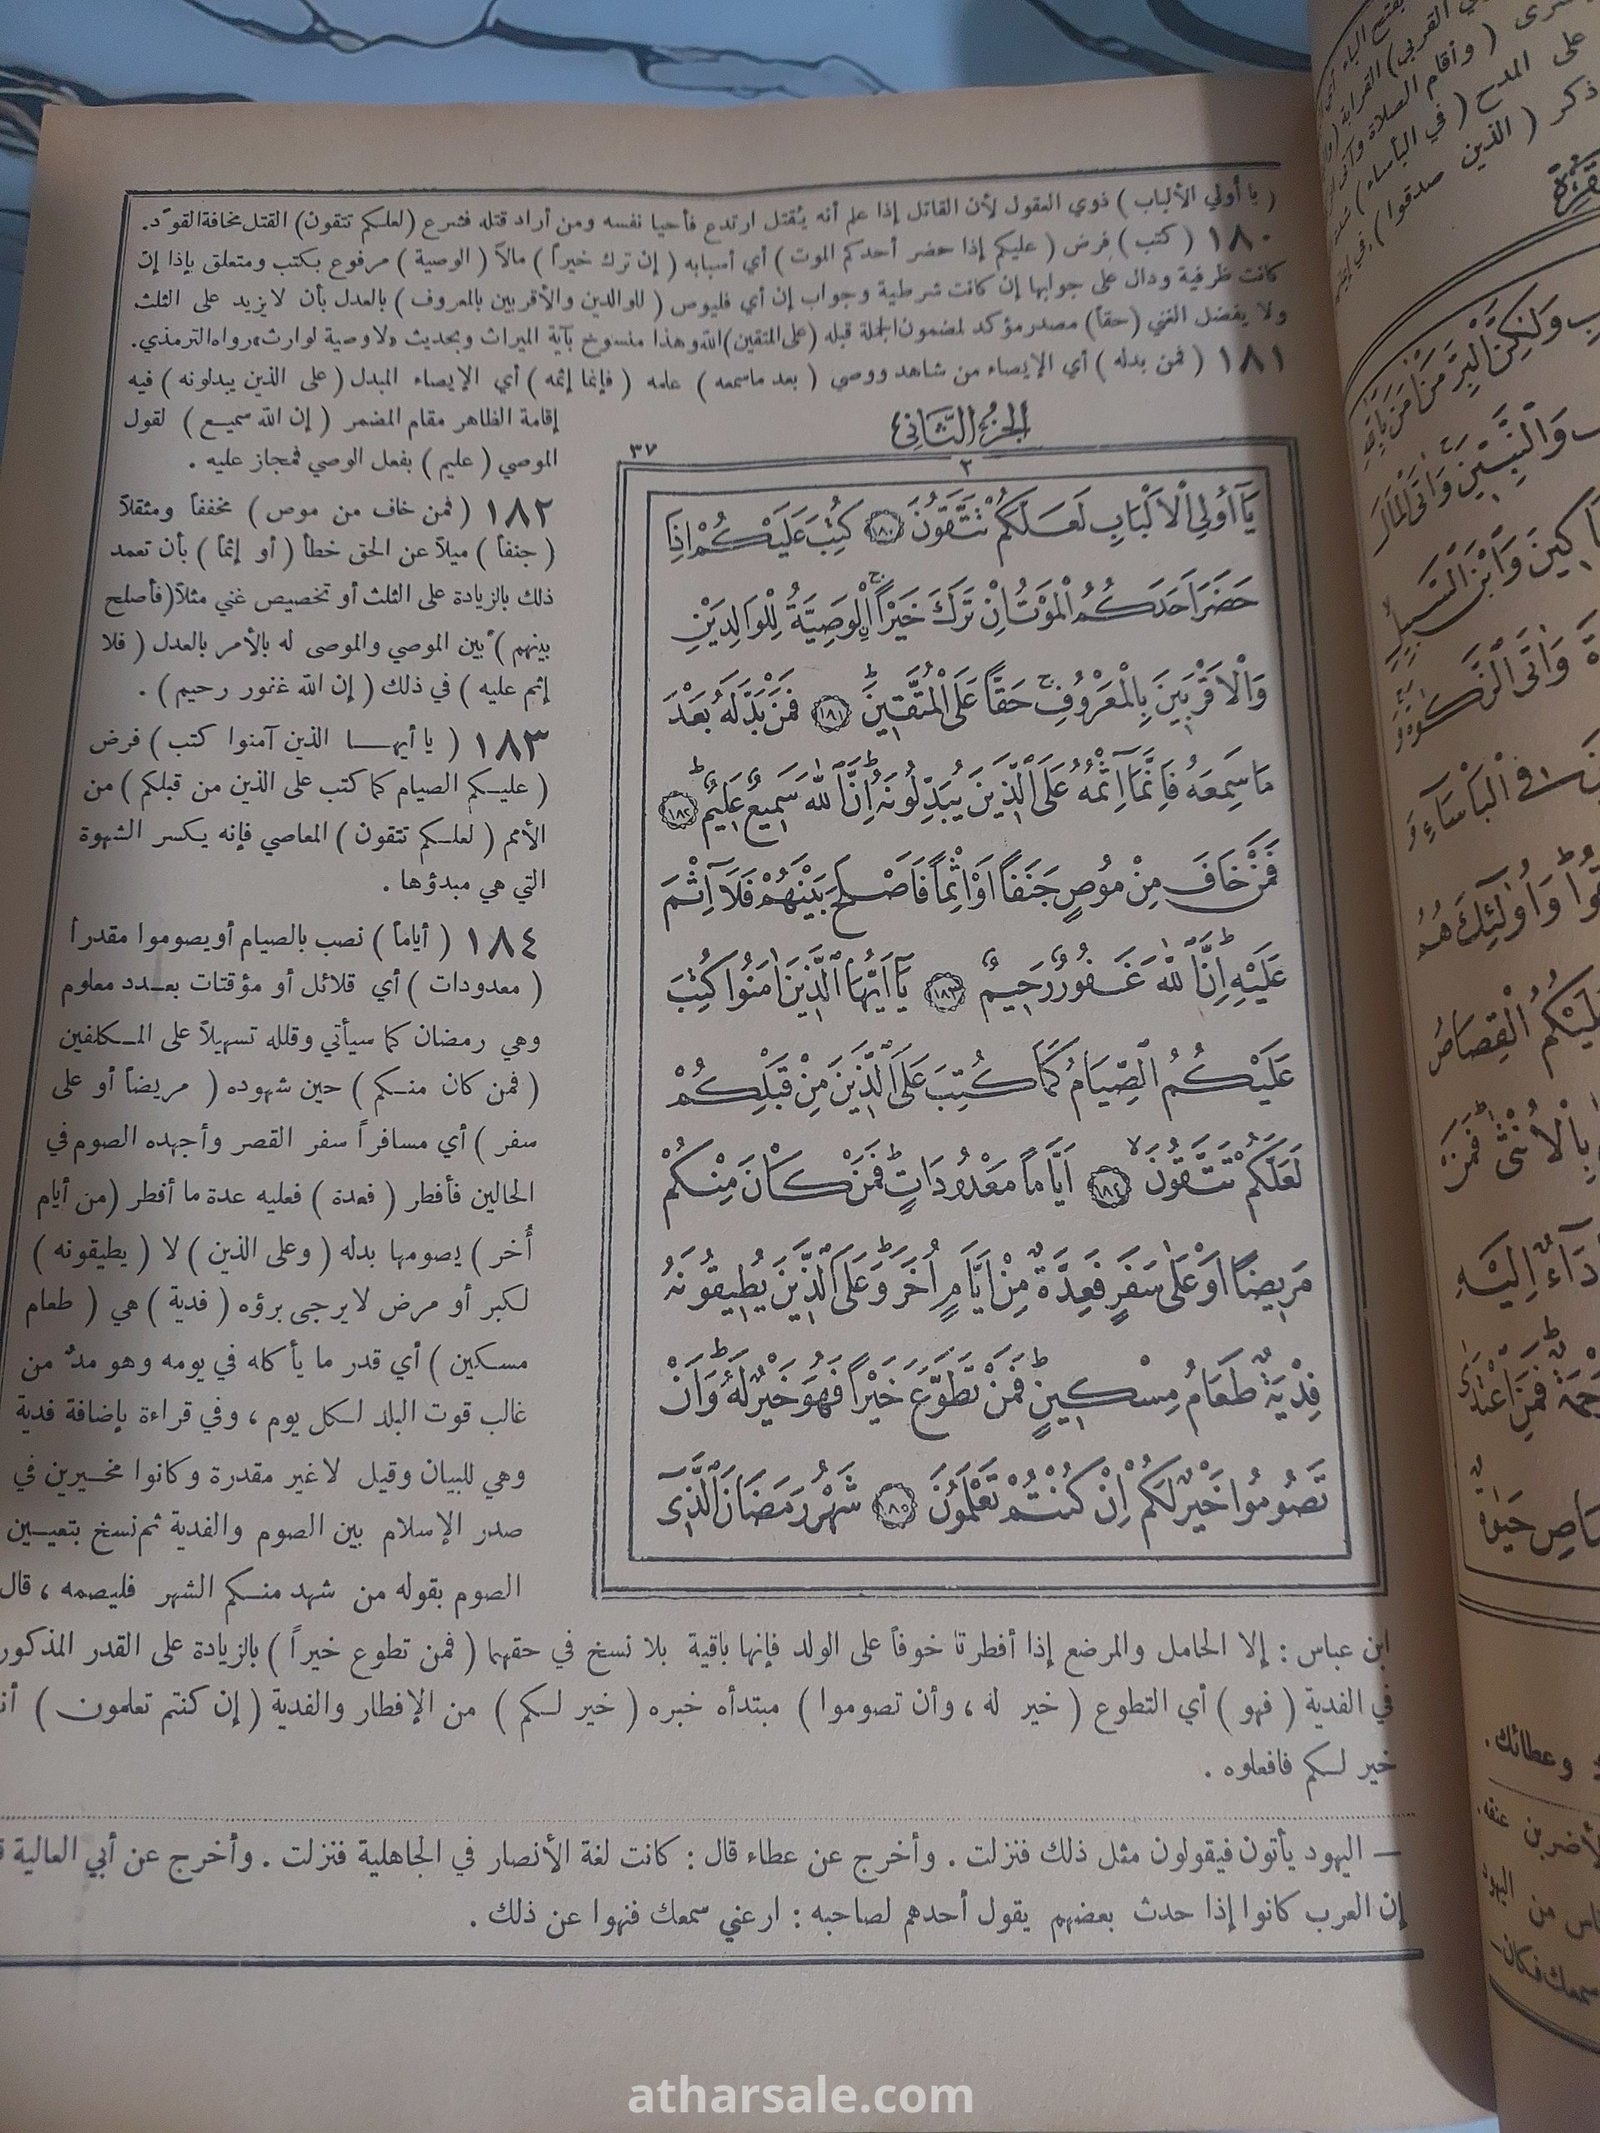 ( يا أولي الألباب ) ذوي العقول لأن القاتل إذا علم أنه يُقتل ارتدع فأحيا نفسه ومن أراد قتله فشرع (لعلكم تتقون) القتل مخافة القوَد.
١٨٠ ( كتب ) فرض ( عليكم إذا حضر أحدكم الموت ) أي أسبابه ( إن ترك خيراً ) مالاً ( الوصية ) مرفوع بكتب ومتعلق بإذا إن
كانت ظرفية ودال على جوابها إن كانت شرطية وجواب إن أي فليوص ( للوالدين والأقربين بالمعروف ) بالعدل بأن لا يزيد على الثلث
ولا يفضل الغني (حقاً) مصدر مؤكد لمضمون الجملة قبله (على المتقين) الله وهذا منسوخ بآية الميراث وبحديث «لا وصية لوارث» رواه الترمذي.
١٨١ ( فمن بدله ) أي الإيصاء من شاهد ووصي ( بعد ما سمعه ) علمه ( فإنما إثمه ) أي الإيصاء المبدل ( على الذين يبدلونه ) فيه
إقامة الظاهر مقام المضمر ( إن الله سميع ) لقول
الموصي ( عليم ) بفعل الوصي فمجاز عليه .
١٨٢ ( فمن خاف من موص ) مخففاً ومثقلاً
( جنفاً ) ميلاً عن الحق خطأ ( أو إثماً ) بأن تعمد
ذلك بالزيادة على الثلث أو تخصيص غني مثلاً (فأصلح
بينهم ) بين الموصي والموصى له بالأمر بالعدل ( فلا
إثم عليه ) في ذلك ( إن الله غفور رحيم ) .
١٨٣ ( يا أيها الذين آمنوا كتب ) فرض
( عليكم الصيام كما كتب على الذين من قبلكم ) من
الأمم ( لعلكم تتقون ) المعاصي فإنه يكسر الشهوة
التي هي مبدؤها .
١٨٤ ( أياماً ) نصب بالصيام أو يصوموا مقدراً
( معدودات ) أي قلائل أو مؤقتات بعدد معلوم
وهي رمضان كما سيأتي وقلله تسهيلاً على المكلفين
( فمن كان منكم ) حين شهوده ( مريضاً أو على
سفر ) أي مسافراً سفر القصر وأجهده الصوم في
الحالين فأفطر ( فعدة ) فعليه عدة ما أفطر (من أيام
أُخر ) يصومها بدله ( وعلى الذين ) لا ( يطيقونه )
لكبر أو مرض لا يرجى برؤه ( فدية ) هي ( طعام
مسكين ) أي قدر ما يأكله في يومه وهو مدّ من
غالب قوت البلد لكل يوم ، وفي قراءة بإضافة فدية
وهي للبيان وقيل لا غير مقدرة وكانوا مخيرين في
صدر الإسلام بين الصوم والفدية ثم نسخ بتعيين
الصوم بقوله من شهد منكم الشهر فليصمه ، قال
ابن عباس : إلا الحامل والمرضع إذا أفطرتا خوفاً على الولد فإنها باقية بلا نسخ في حقهما ( فمن تطوع خيراً ) بالزيادة على القدر المذكور
في الفدية ( فهو ) أي التطوع ( خير له ، وأن تصوموا ) مبتدأه خبره ( خير لكم ) من الإفطار والفدية ( إن كنتم تعلمون )
خير لكم فافعلوه .
الجزء الثاني
٣٧
٢
يَآ اُولِي الْاَلْبَابِ لَعَلَّكُمْ تَتَّقُونَ ١٨٠ كُتِبَ عَلَيْكُمْ اِذَا
حَضَرَ اَحَدَكُمُ الْمَوْتُ اِنْ تَرَكَ خَيْرًاۚ اِلْوَصِيَّةُ لِلْوَالِدَيْنِ
وَالْاَقْرَبِينَ بِالْمَعْرُوفِۚ حَقًّا عَلَى الْمُتَّقِينَۜ ١٨١ فَمَنْ بَدَّلَهُ بَعْدَ
مَا سَمِعَهُ فَاِنَّمَآ اِثْمُهُ عَلَى الَّذِينَ يُبَدِّلُونَهُۜ اِنَّ اللّٰهَ سَمِيعٌ عَلِيمٌۜ ١٨٢
فَمَنْ خَافَ مِنْ مُوصٍ جَنَفًا اَوْ اِثْمًا فَاَصْلَحَ بَيْنَهُمْ فَلَآ اِثْمَ
عَلَيْهِۜ اِنَّ اللّٰهَ غَفُورٌ رَحِيمٌ ١٨٣ يَآ اَيُّهَا الَّذِينَ اٰمَنُوا كُتِبَ
عَلَيْكُمُ الصِّيَامُ كَمَا كُتِبَ عَلَى الَّذِينَ مِنْ قَبْلِكُمْ
لَعَلَّكُمْ تَتَّقُونَۙ ١٨٤ اَيَّامًا مَعْدُودَاتٍۜ فَمَنْ كَانَ مِنْكُمْ
مَرِيضًا اَوْ عَلٰى سَفَرٍ فَعِدَّةٌ مِنْ اَيَّامٍ اُخَرَۜ وَعَلَى الَّذِينَ يُطِيقُونَهُ
فِدْيَةٌ طَعَامُ مِسْكِينٍۜ فَمَنْ تَطَوَّعَ خَيْرًا فَهُوَ خَيْرٌ لَهُۜ وَاَنْ
تَصُومُوا خَيْرٌ لَكُمْ اِنْ كُنْتُمْ تَعْلَمُونَ ١٨٥ شَهْرُ رَمَضَانَ الَّذِٓي
— اليهود يأتون فيقولون مثل ذلك فنزلت . وأخرج عن عطاء قال : كانت لغة الأنصار في الجاهلية فنزلت . وأخرج عن أبي العالية
إن العرب كانوا إذا حدث بعضهم يقول أحدهم لصاحبه : ارعني سمعك فنهوا عن ذلك .
atharsale.com